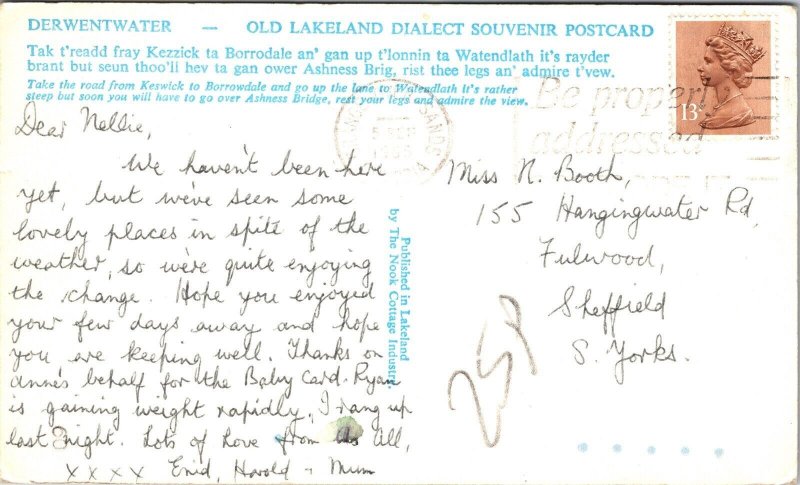 DERWENTWATER — OLD LAKELAND DIALECT SOUVENIR POSTCARD
Tak t'readd fray Kezzick ta Borrodale an' gan up t'lonnin ta Watendlath it's rayder
brant but seun thoo'll hev ta gan ower Ashness Brig, rist thee legs an' admire t'vew.
Take the road from Keswick to Borrowdale and go up the lane to Watendlath it's rather
steep but soon you will have to go over Ashness Bridge, rest your legs and admire the view.
Dear Nellie,
We haven't been here
yet, but we've seen some
lovely places in spite of the
weather, so we're quite enjoying
the change. Hope you enjoyed
your few days away and hope
you are keeping well. Thanks on
Anne's behalf for the Baby Card. Ryan
is gaining weight rapidly, I rang up
last night. Lots of Love from us all,
x x x x Enid, Harold + Mum
Published in Lakeland
by The Nook Cottage Industry.
13
SANDS
Be properly
addressed
Miss N. Booth,
155 Hangingwater Rd,
Fulwood,
Sheffield
S. Yorks.
25p